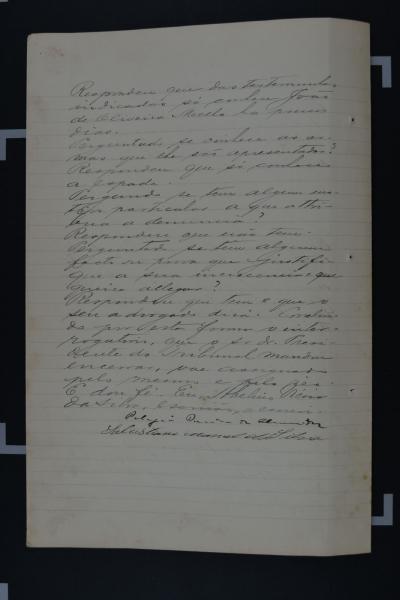 Respondeu que das testemunhas
indicadas só conhece João
de Oliveira Mello ha poucos
dias.
Perguntado se conhece as ar-
mas que lhe são apresentadas?
Respondeu que só conhece
a espada.
Perguntado se tem algum mo-
tivo particular a que attri-
bua a denuncia?
Respondeu que não tem.
Perguntado se tem algum
facto ou prova que justifi-
que a sua innocencia e que
queira allegar?
Respondeu que tem e que o
seu advogado dirá.
por esta forma o inter-
rogatorio, que o Sr. Dr. Presi-
dente do Tribunal mandou
encerrar, vae assignado
pelo mesmo e pelo réu.
E dou fé. Eu,
da Silva, Escrivão, o escrevi.
de Almeida
da Silva